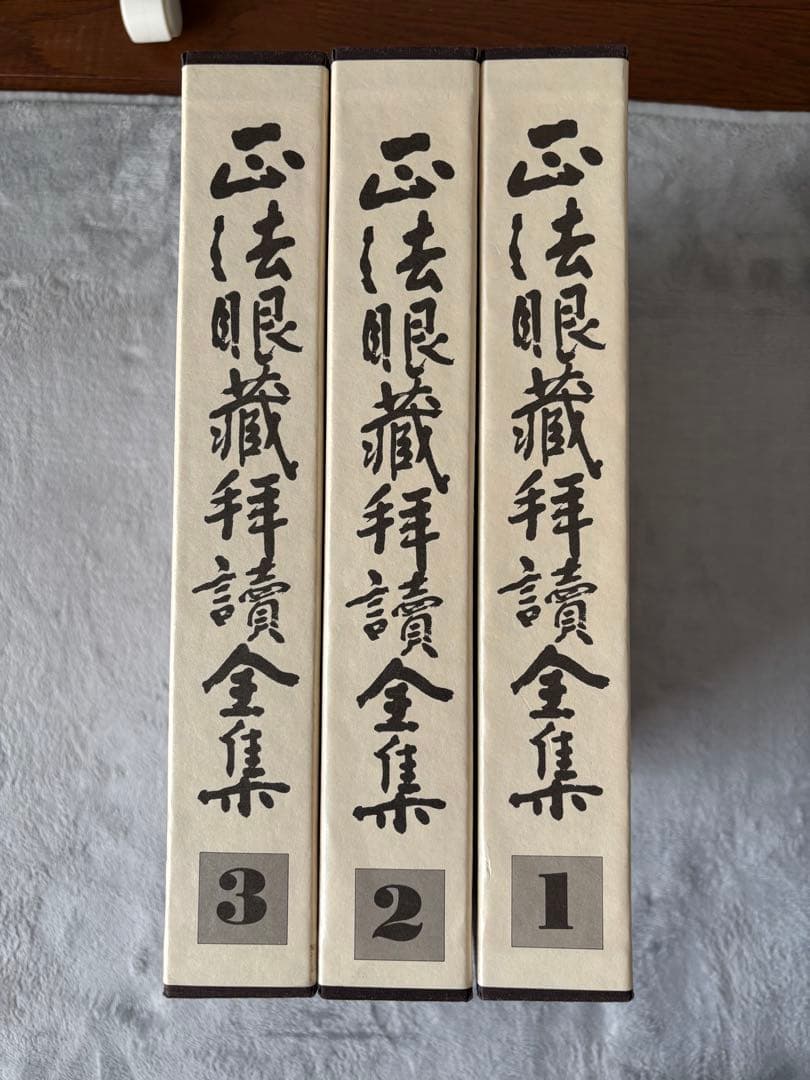 正法眼藏拜讀全集
1
正法眼藏拜讀全集
2
正法眼藏拜讀全集
3